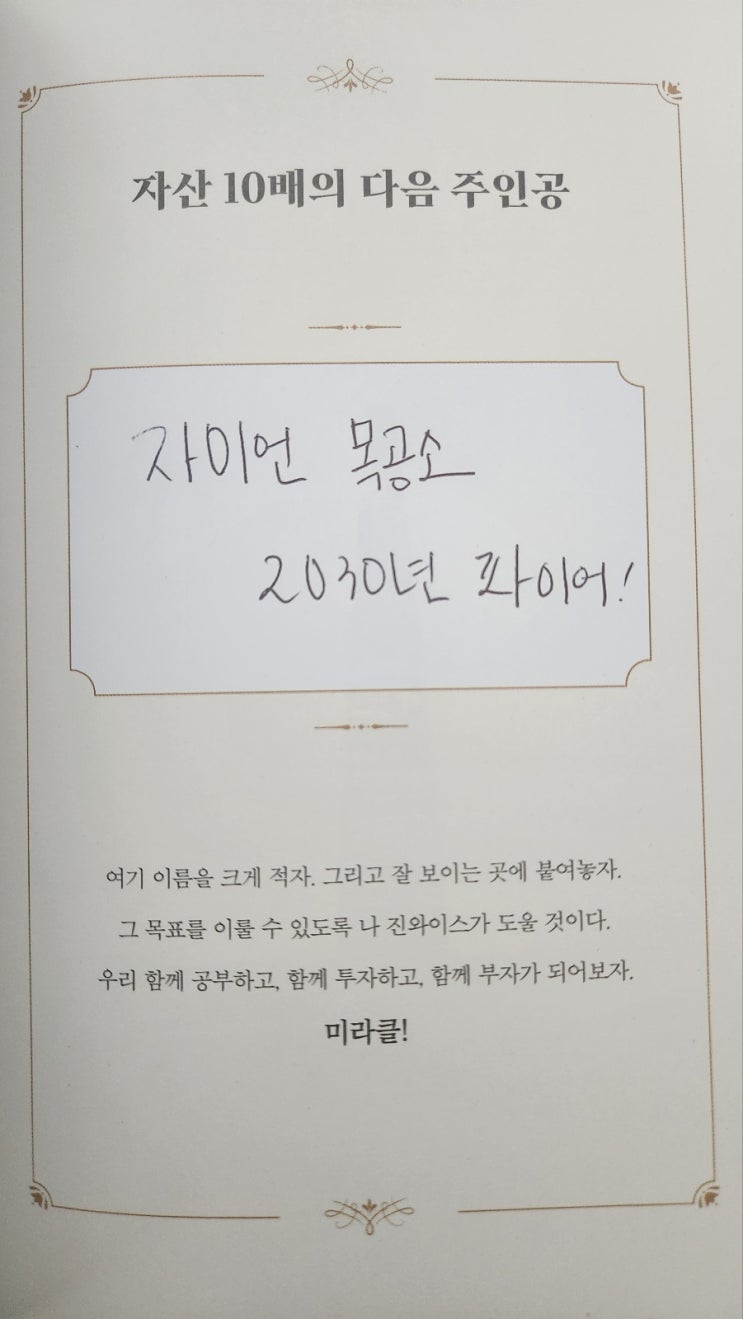 자산 10배의 다음 주인공
자이언 목공소
2030년 파이어!
여기 이름을 크게 적자. 그리고 잘 보이는 곳에 붙여놓자.
그 목표를 이룰 수 있도록 나 진와이스가 도울 것이다.
우리 함께 공부하고, 함께 투자하고, 함께 부자가 되어보자.
미라클!